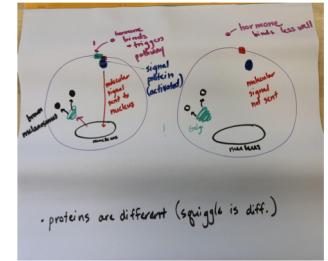 hormone
binds
→ triggers
pathway
signal
protein
(activated)
molecular
signal
sent to
nucleus
brown
melanosomes
nucleus
hormone
binds less well
molecular
signal
not sent
Golgi
nucleus
• proteins are different (squiggle is diff.)